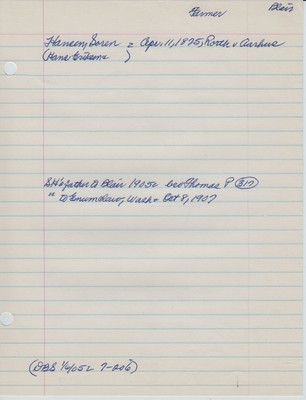 Farmer Blair
Hansen, Soren = Apr. 11, 1875, Rorth v Aarhus
(Hans Eriksens )
SH's father @ Blair 1905c bro Thomas P 317
" to Enumclaw, Wash = Oct 8, 1907
(DBS 1/6/05c 7-206)